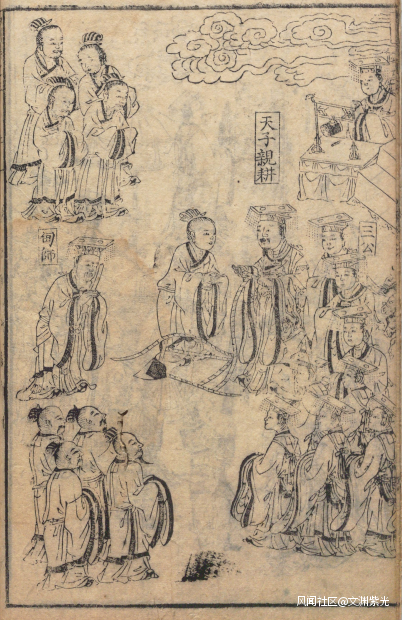 三公
天子親耕
甸師
风闻社区@文洲紫光